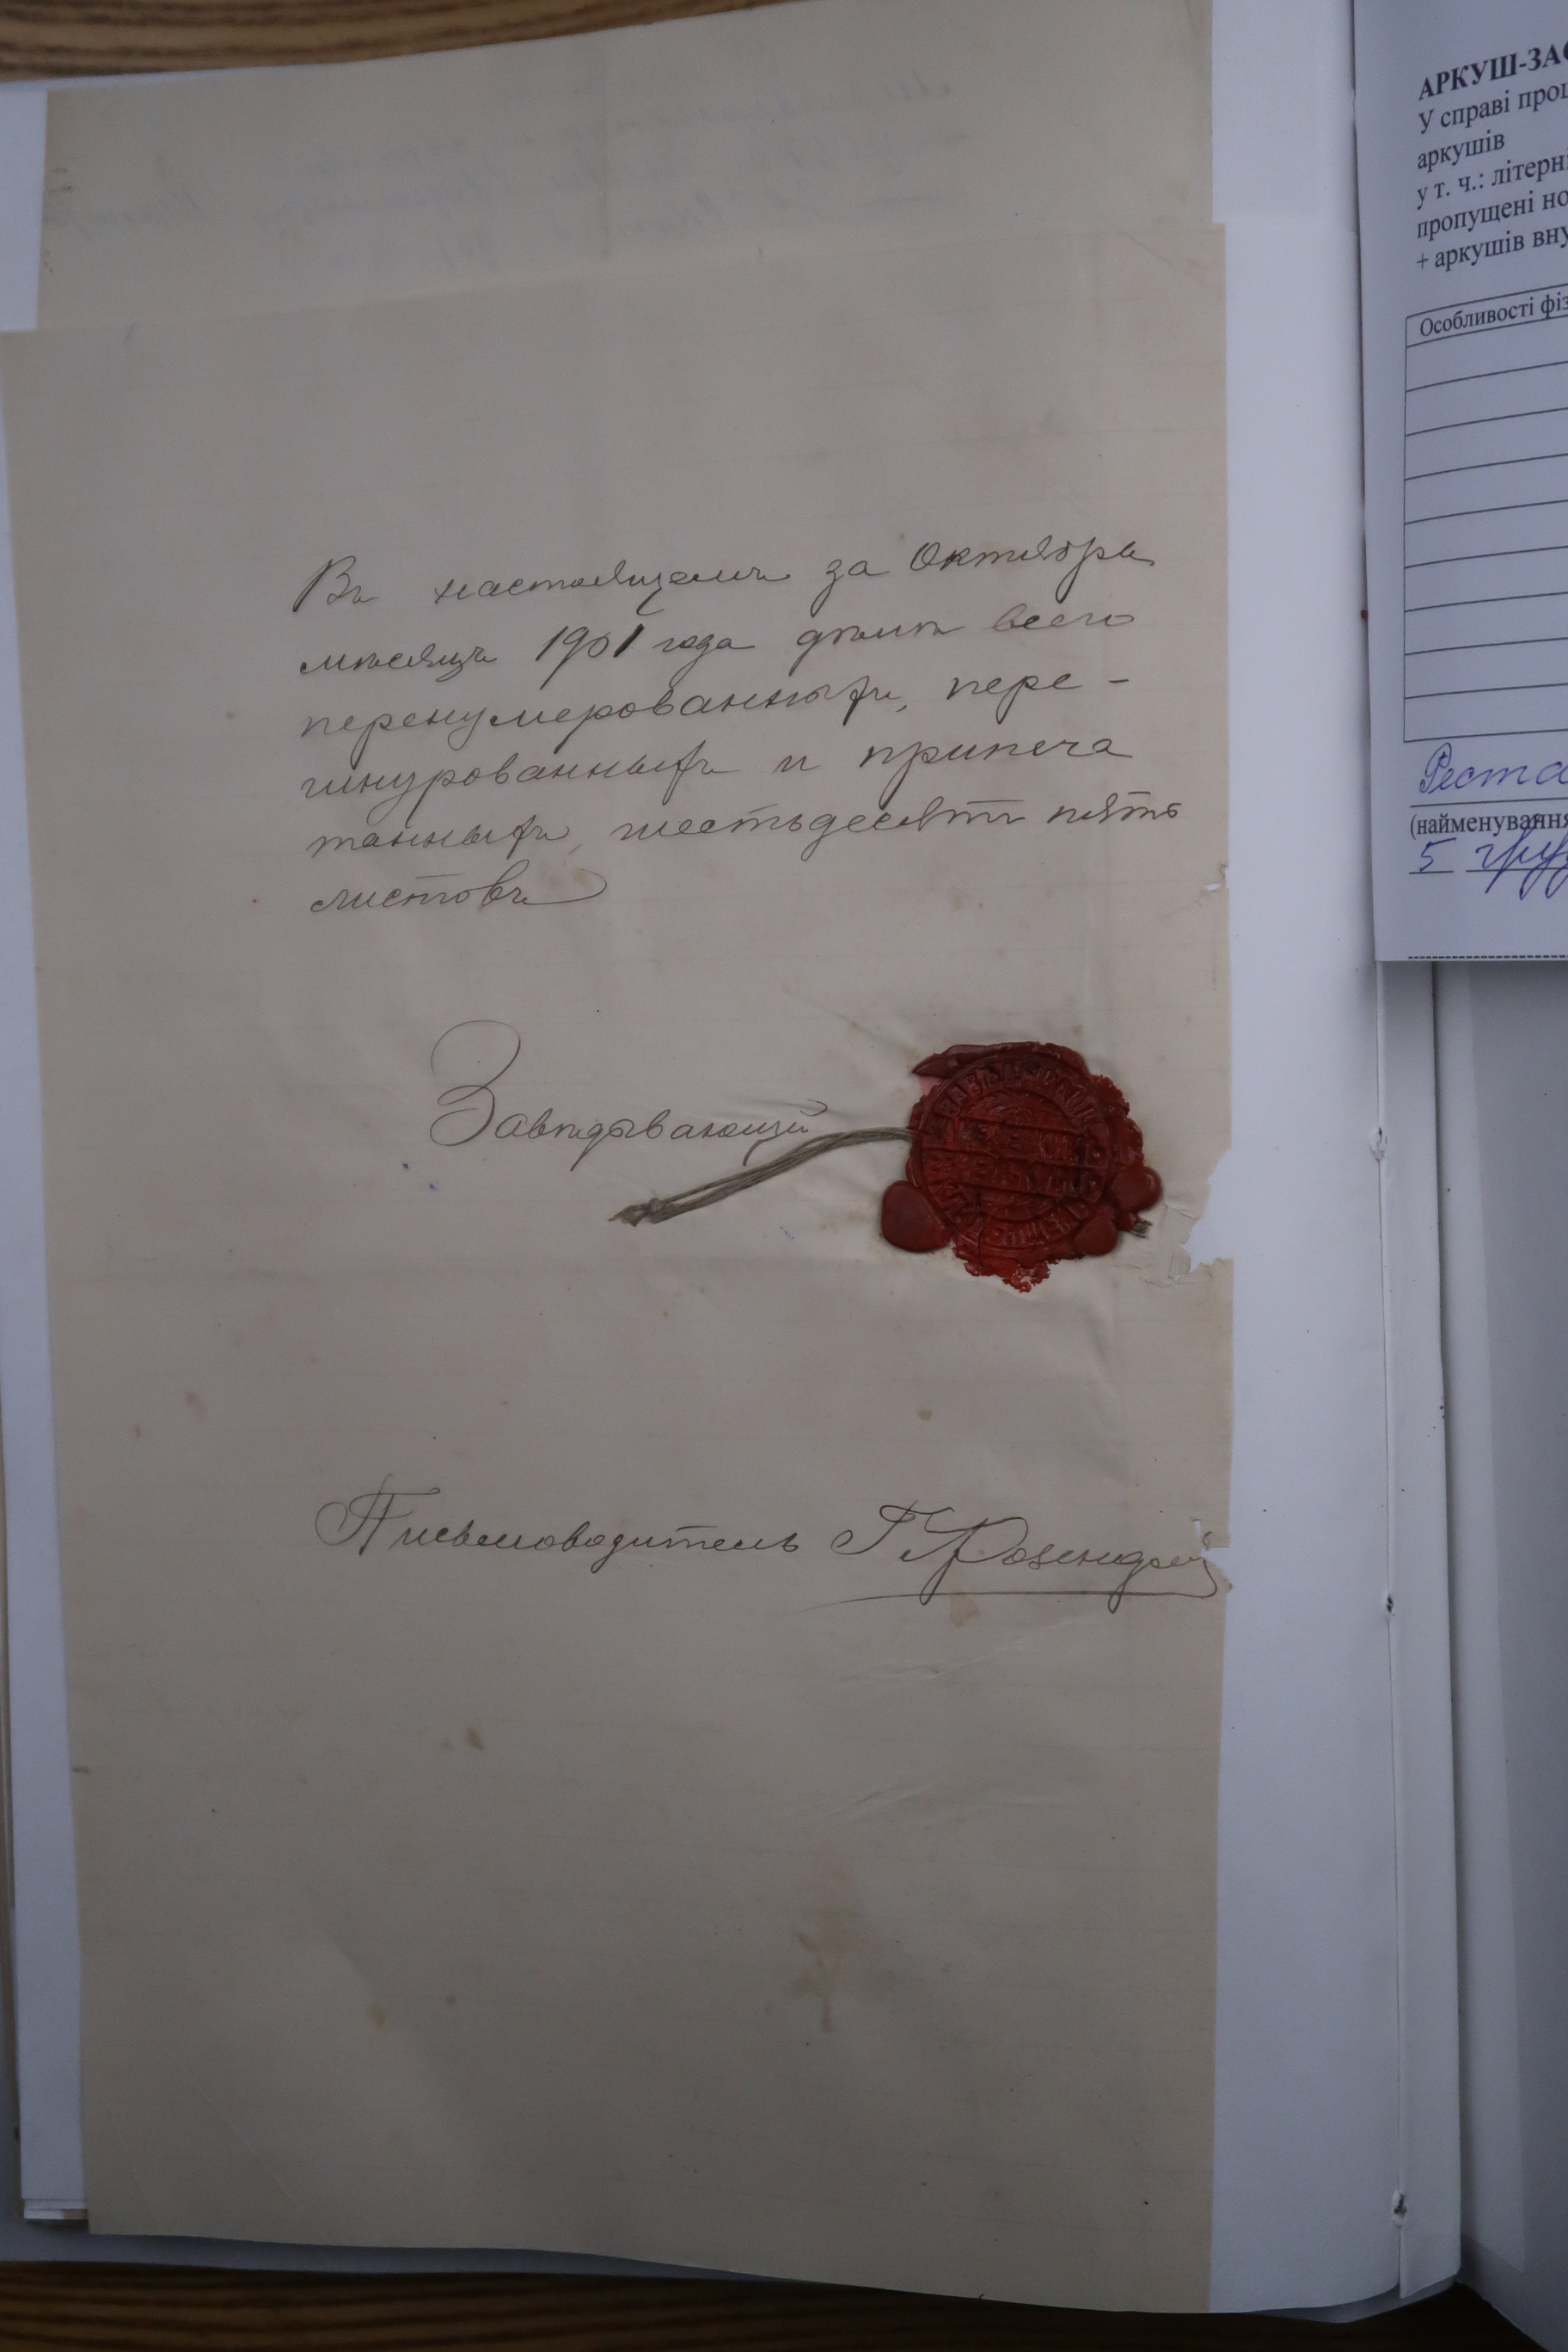 Въ настоящемъ за Октябрь
мѣсяцъ 1901 года дѣлѣ всего
перенумерованныхъ, пере-
шнурованныхъ и припеча
танныхъ, шестьдесятъ пять
листовъ
Завѣдывающій
Письмоводитель Г. Розенд
АРКУШ-ЗАС
У справі прош
аркушів
у т. ч.: літерні
пропущені но
+ аркушів вну
Особливості фіз
Реста
(найменування
5